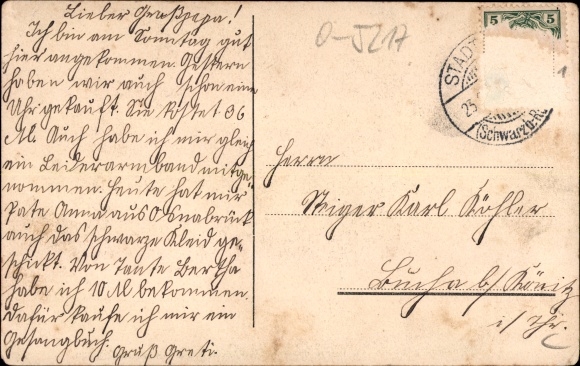 Lieber Großpapa!
Ich bin am Sonntag gut
hier angekommen. Gestern
haben wir auch schon eine
Uhr gekauft. Sie kostet 36
M. Auch habe ich mir gleich
ein Lederarmband mitge-
nommen. Heute hat mir
Pate Anna aus Osnabrück
auch das schwarze Kleid ge-
schickt. Von Tante Bertha
habe ich 10 M bekommen.
Dafür kaufe ich mir ein
Gesangbuch.
Gruß Greti.
O-5217
5 5
STADT
25
(Schwarzb.-R
Herrn
Karl Köhler
Bucha b/ Könitz
i/ Thür.